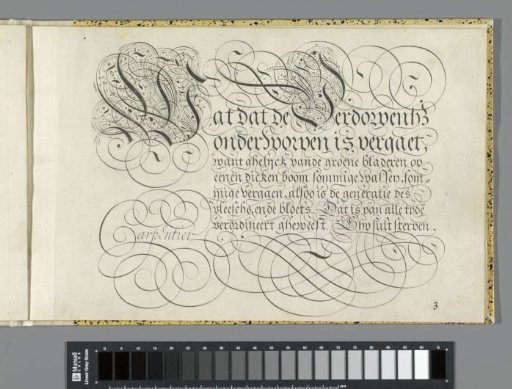 Wat dat de Verdorvenh?
onderworpen is, vergaet,
want ghelyck vande groene bladeren op
eenen dicken boom sommige wassen, som-
mige vergaen, alsoo is de generatie des
vleeschs, ende bloets. Dat is van alle tyde
verordineert gheweest. Ghy sult sterven.
Carpentier
3